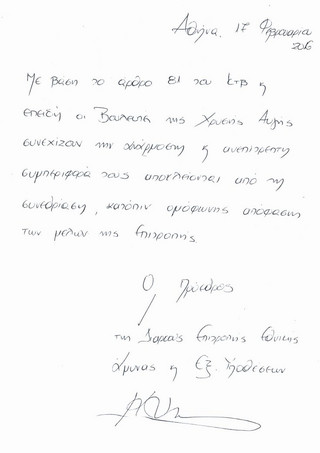 Αθήνα, 17 Φεβρουαρίου
2016
Με βάση το άρθρο 81 του ΚτΒ η
επειδή οι Βουλευτές της Χρυσής Αυγής
συνεχίζουν την ανάρμοστη η ανεπίτρεπτη
συμπεριφορά τους αποκλείονται από τη
συνεδρίαση, κατόπιν ομόφωνης απόφασης
των μελών της Επιτροπής
Ο Πρόεδρος
της Διαρκούς Επιτροπής Εθνικής
Άμυνας η Εξ. Υποθέσεων